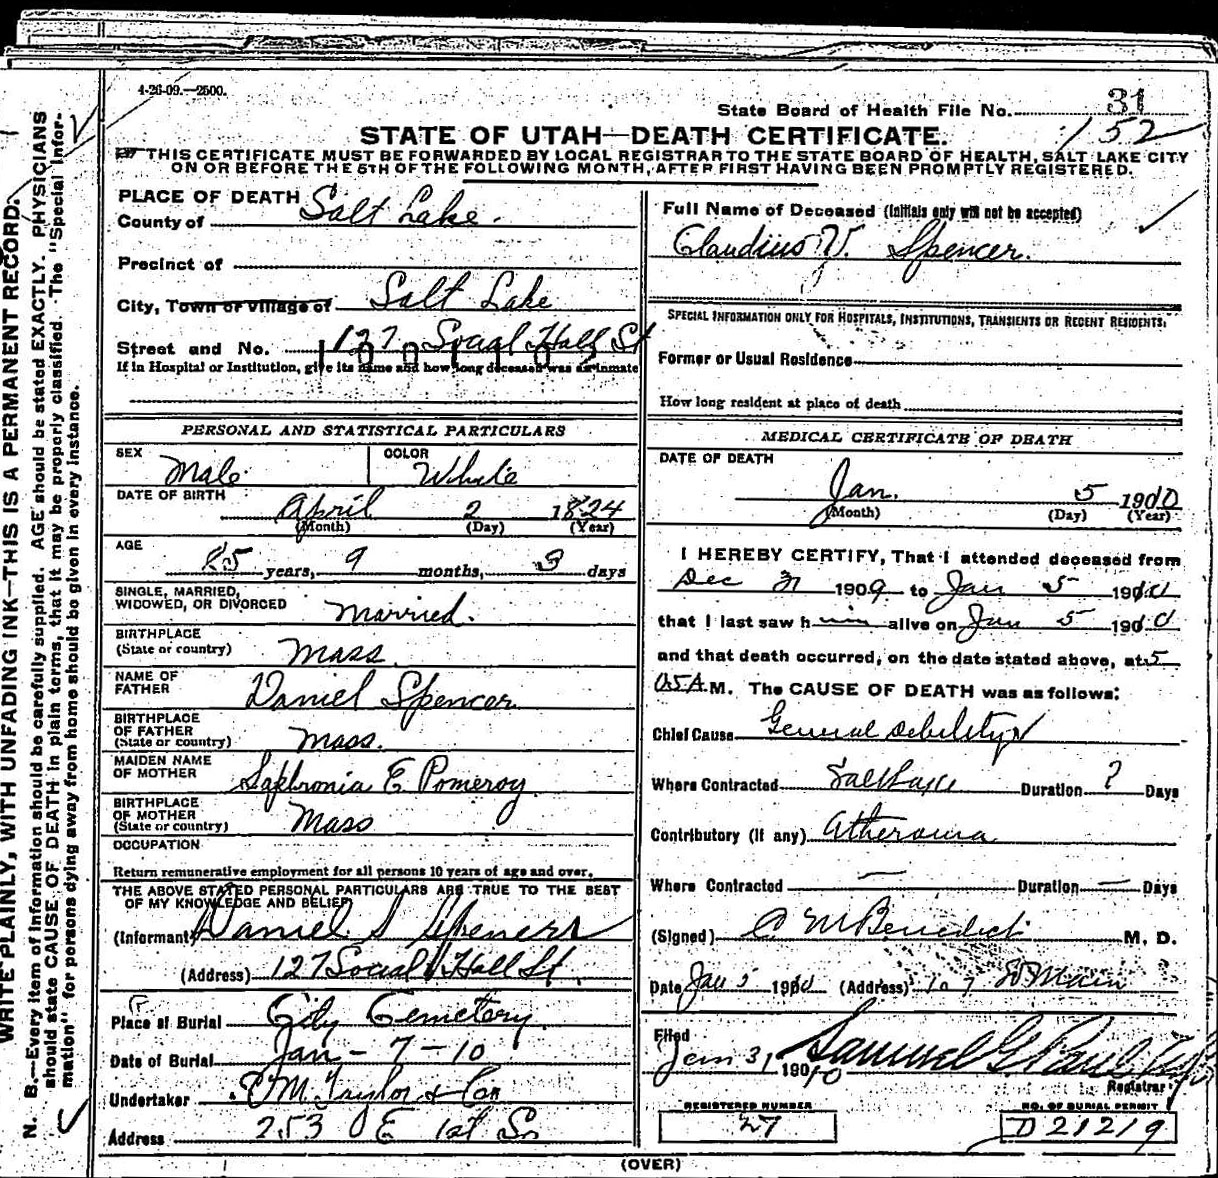 4-26-09.—2500.
State Board of Health File No. 31
152
STATE OF UTAH—DEATH CERTIFICATE.
THIS CERTIFICATE MUST BE FORWARDED BY LOCAL REGISTRAR TO THE STATE BOARD OF HEALTH, SALT LAKE CITY
ON OR BEFORE THE 5TH OF THE FOLLOWING MONTH, AFTER FIRST HAVING BEEN PROMPTLY REGISTERED.
WRITE PLAINLY, WITH UNFADING INK—THIS IS A PERMANENT RECORD.
N. B.—Every item of information should be carefully supplied. AGE should be stated EXACTLY. PHYSICIANS
should state CAUSE OF DEATH in plain terms, that it may be properly classified. The "Special Infor-
mation" for persons dying away from home should be given in every instance.
PLACE OF DEATH
County of Salt Lake.
Precinct of
City, Town or Village of Salt Lake
Street and No. 127 Social Hall St
If in Hospital or Institution, give its name and how long deceased was an inmate
PERSONAL AND STATISTICAL PARTICULARS
SEX Male COLOR White
DATE OF BIRTH April 2 1824
(Month) (Day) (Year)
AGE 85 years, 9 months, 3 days
SINGLE, MARRIED,
WIDOWED, OR DIVORCED Married.
BIRTHPLACE
(State or country) Mass.
NAME OF
FATHER Daniel Spencer
BIRTHPLACE
OF FATHER
(State or country) Mass.
MAIDEN NAME
OF MOTHER Sophronia E Pomeroy
BIRTHPLACE
OF MOTHER
(State or country) Mass
OCCUPATION
Return remunerative employment for all persons 10 years of age and over.
THE ABOVE STATED PERSONAL PARTICULARS ARE TRUE TO THE BEST
OF MY KNOWLEDGE AND BELIEF
(Informant) Daniel S Spencer
(Address) 127 Social Hall St.
Place of Burial City Cemetery
Date of Burial Jan - 7 - 10
Undertaker Taylor & Co
Address 253 E 1st So
Full Name of Deceased (Initials only will not be accepted)
Claudius V. Spencer.
SPECIAL INFORMATION ONLY FOR HOSPITALS, INSTITUTIONS, TRANSIENTS OR RECENT RESIDENTS:
Former or Usual Residence
How long resident at place of death
MEDICAL CERTIFICATE OF DEATH
DATE OF DEATH
Jan. 5 1910
(Month) (Day) (Year)
I HEREBY CERTIFY, That I attended deceased from
Dec 31 1909 to Jan 5 1910
that I last saw him alive on Jan 5 1910
and that death occurred, on the date stated above, at 5
A.M. The CAUSE OF DEATH was as follows:
Chief Cause General debility
Where Contracted Salt Lake Duration ? Days
Contributory (if any) Atheroma
Where Contracted — Duration — Days
(Signed) C M Benedict M. D.
Date Jan 5 1910 (Address) Main
Filed
Jan 31 1910 Samuel G Paul
Registrar
REGISTERED NUMBER
27
NO. OF BURIAL PERMIT
D 21219
(OVER)